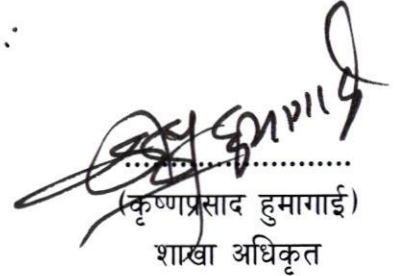 ..............................
(कृष्णप्रसाद हुमागाई)
शाखा अधिकृत